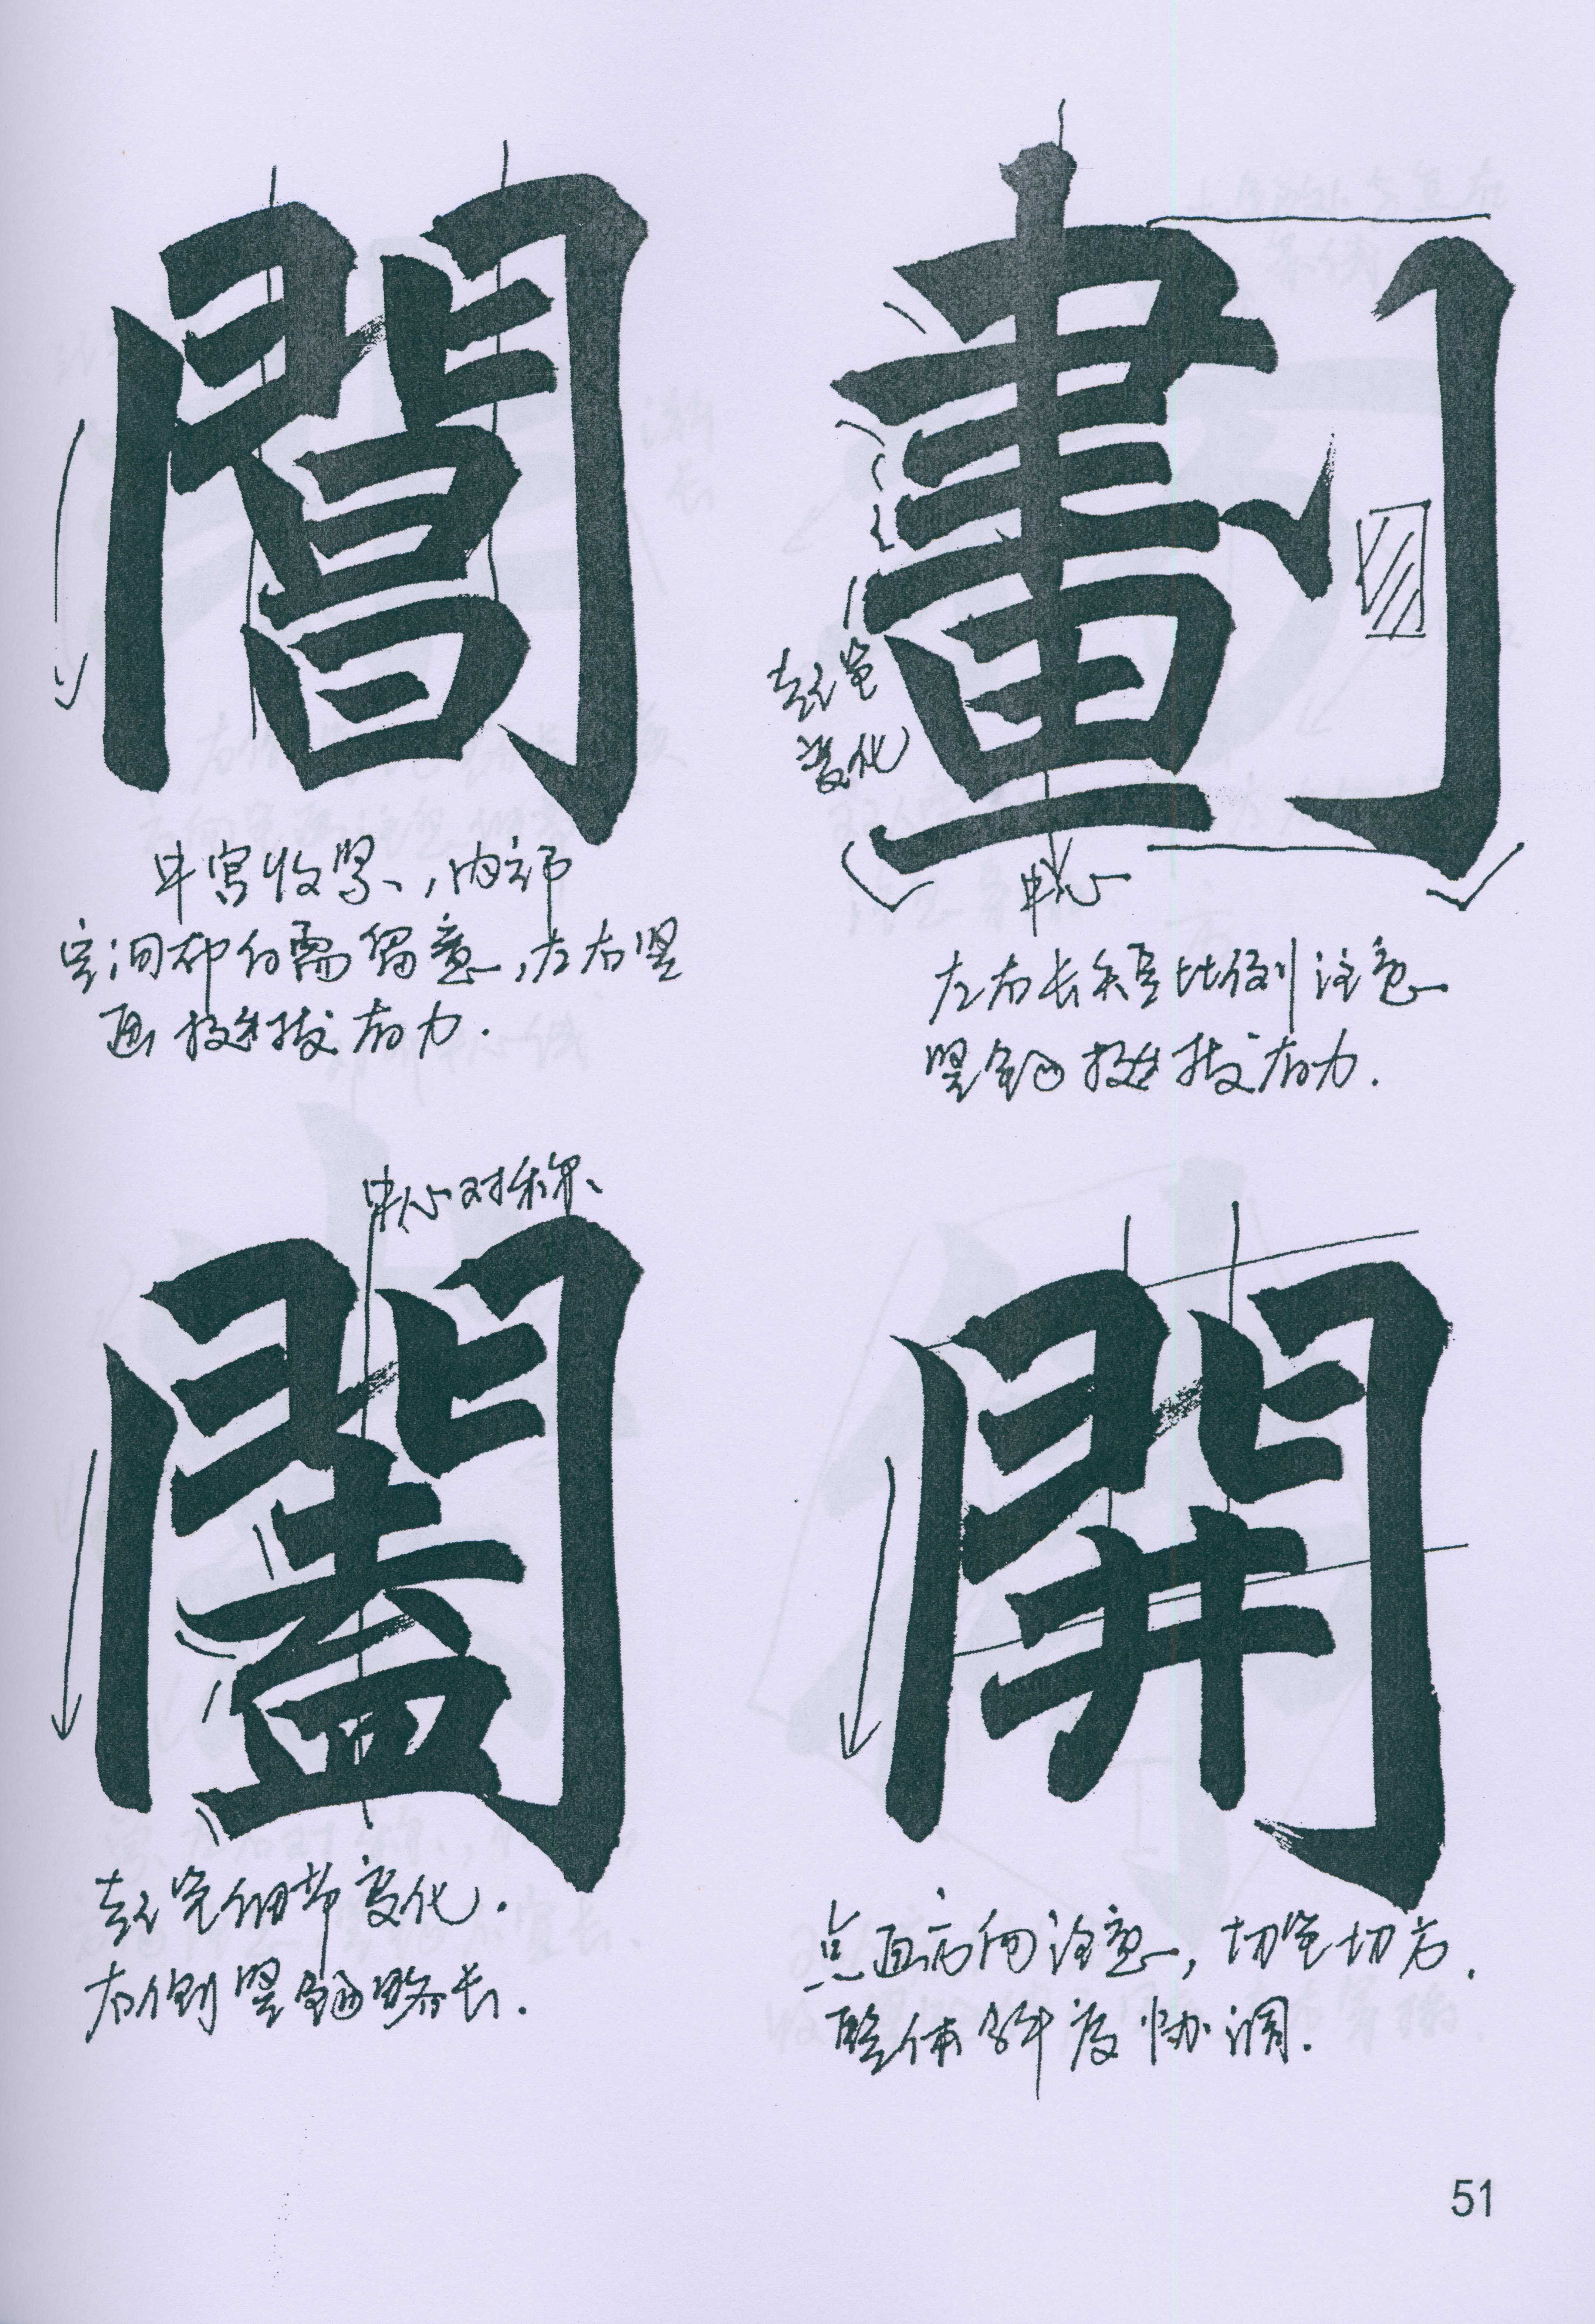 閶
中宫收紧,内部
空间布白需留意,左右竖
画挺拔有力.
劃
起笔
变化
中心
左右长短比例注意
竖钩挺拔有力.
中心对称
闔
起笔细节变化.
右侧竖钩略长.
開
点画方向注意,切笔切方.
整体斜度协调.
51